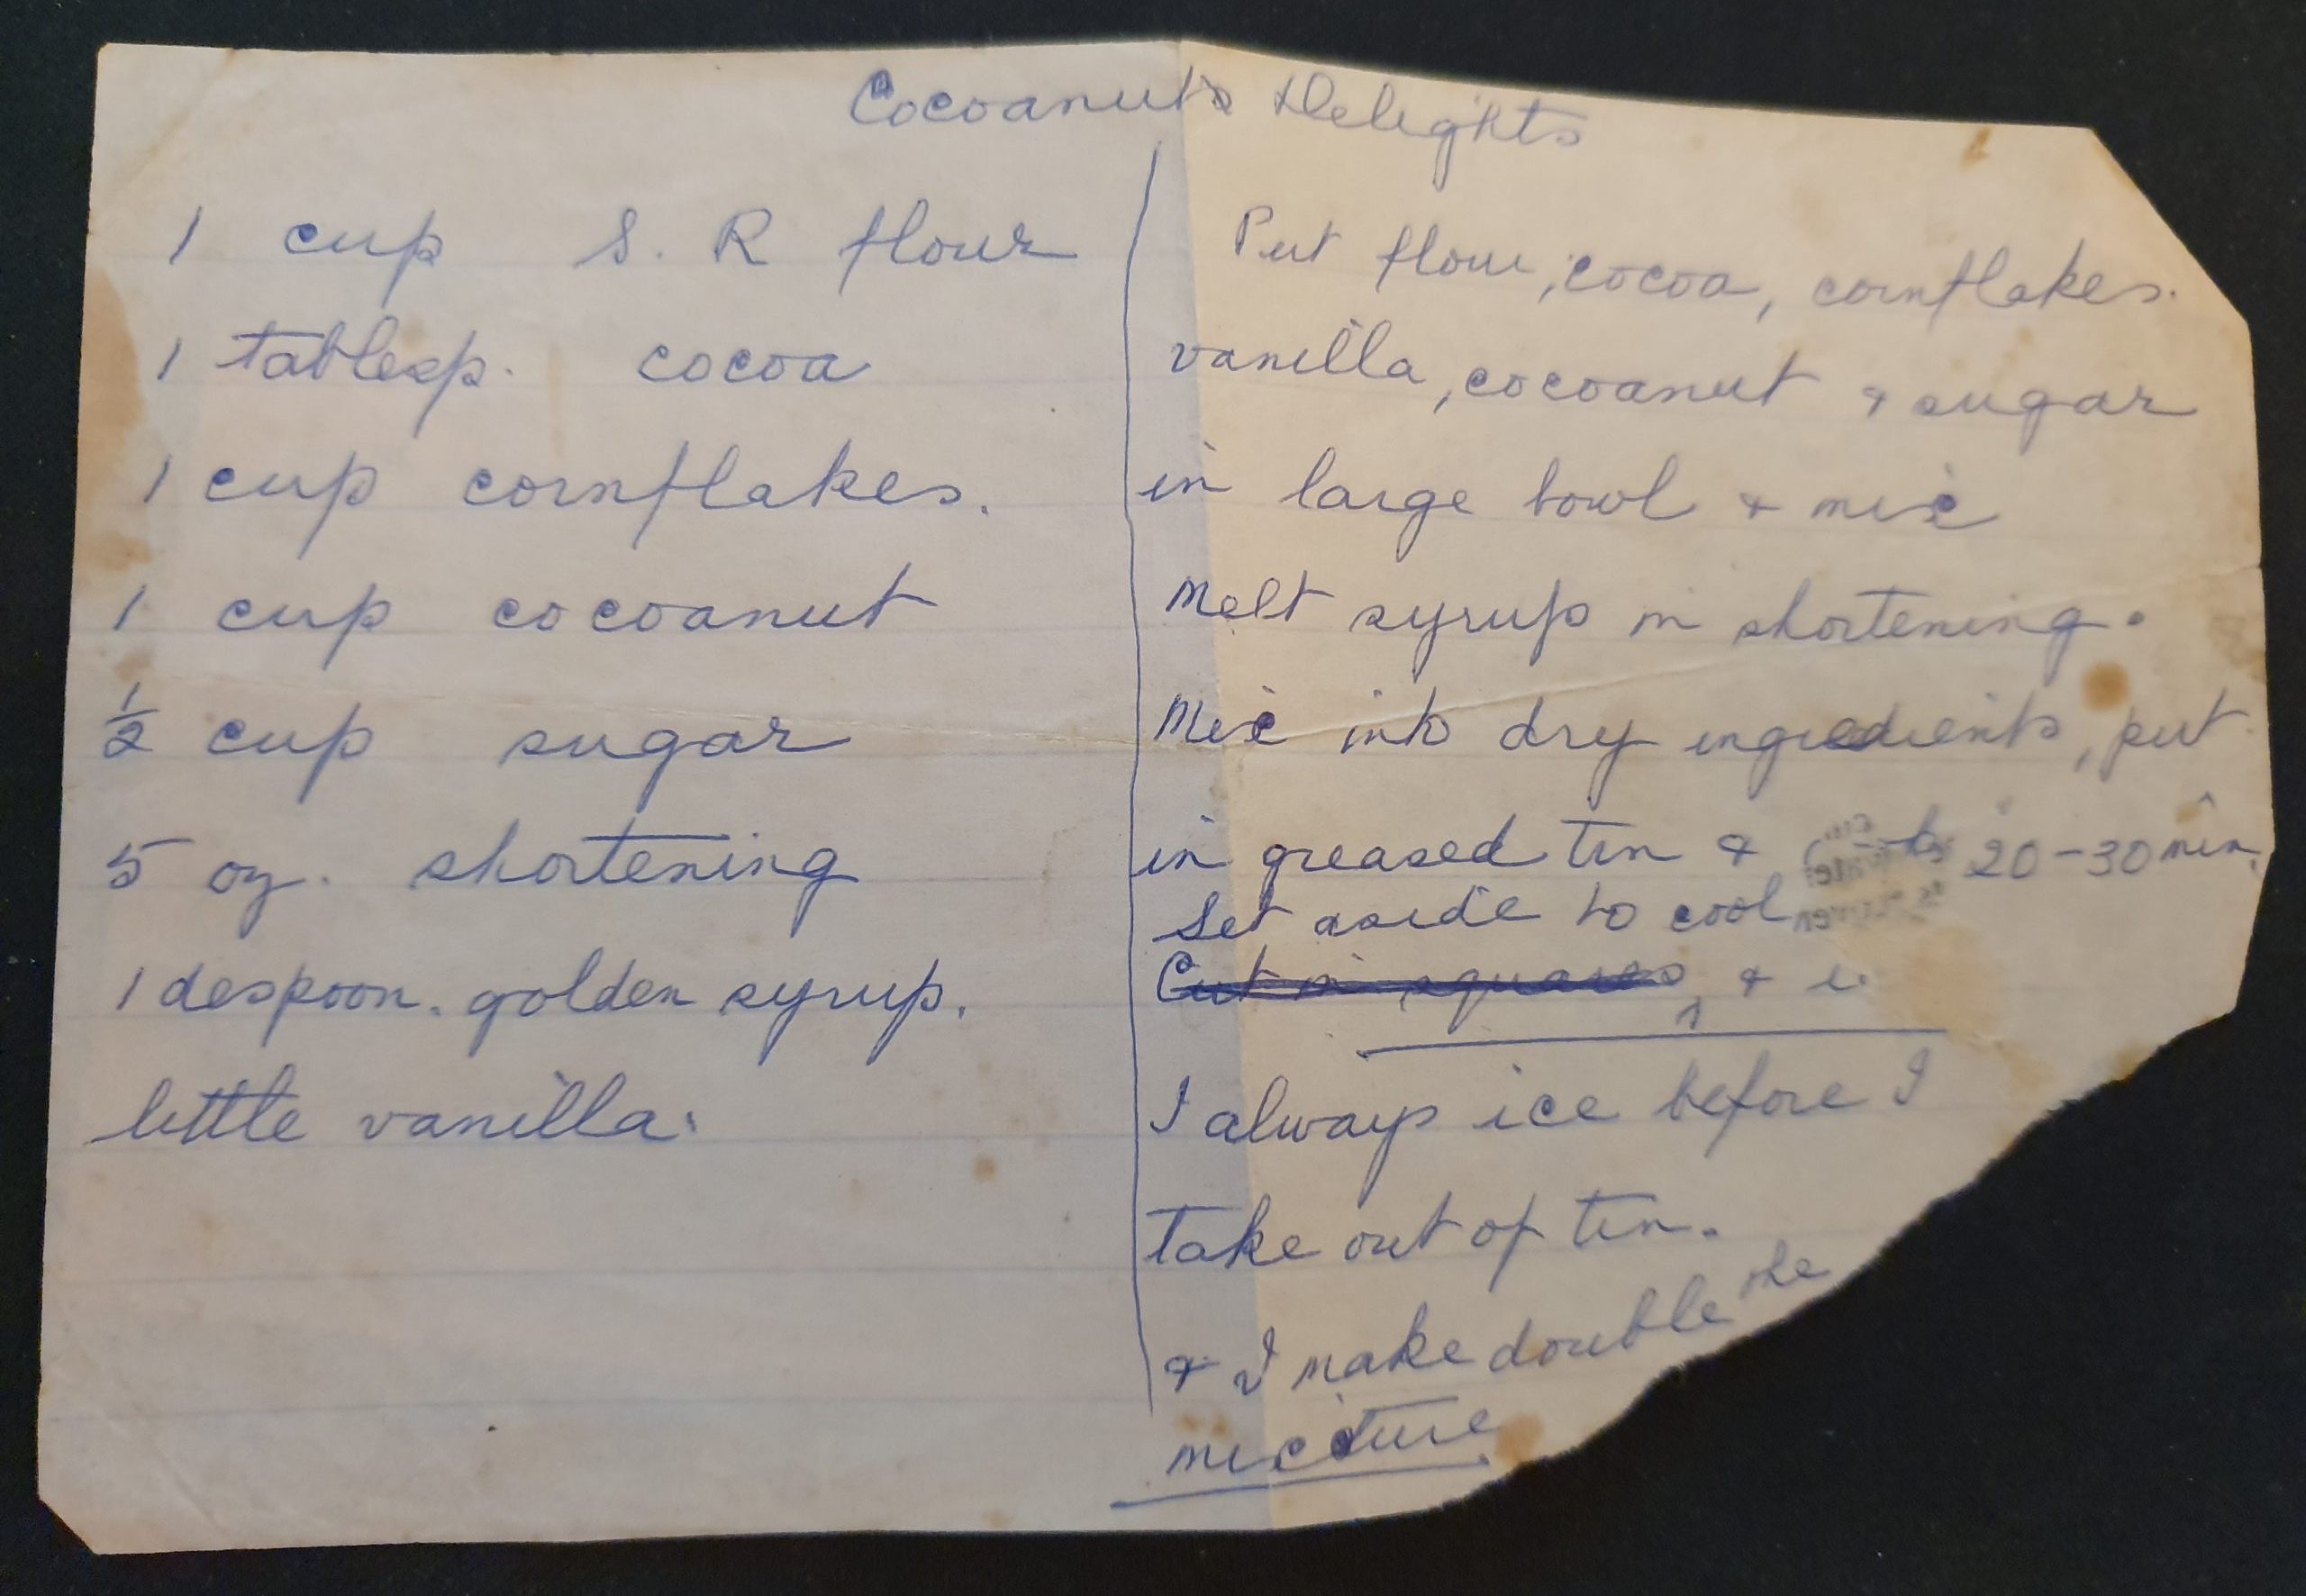 Cocoanuts Delights
1 cup S. R flour
1 tablesp. cocoa
1 cup cornflakes.
1 cup cocoanut
½ cup sugar
5 oz. shortening
1 despoon. golden syrup.
little vanilla.
Put flour, cocoa, cornflakes.
vanilla, cocoanut & sugar
in large bowl & mix
Melt syrup in shortening.
Mix into dry ingredients, put
in greased tin & 20-30 min.
Set aside to cool
Cut in squares, &
I always ice before I
take out of tin.
& I make double the
mixture